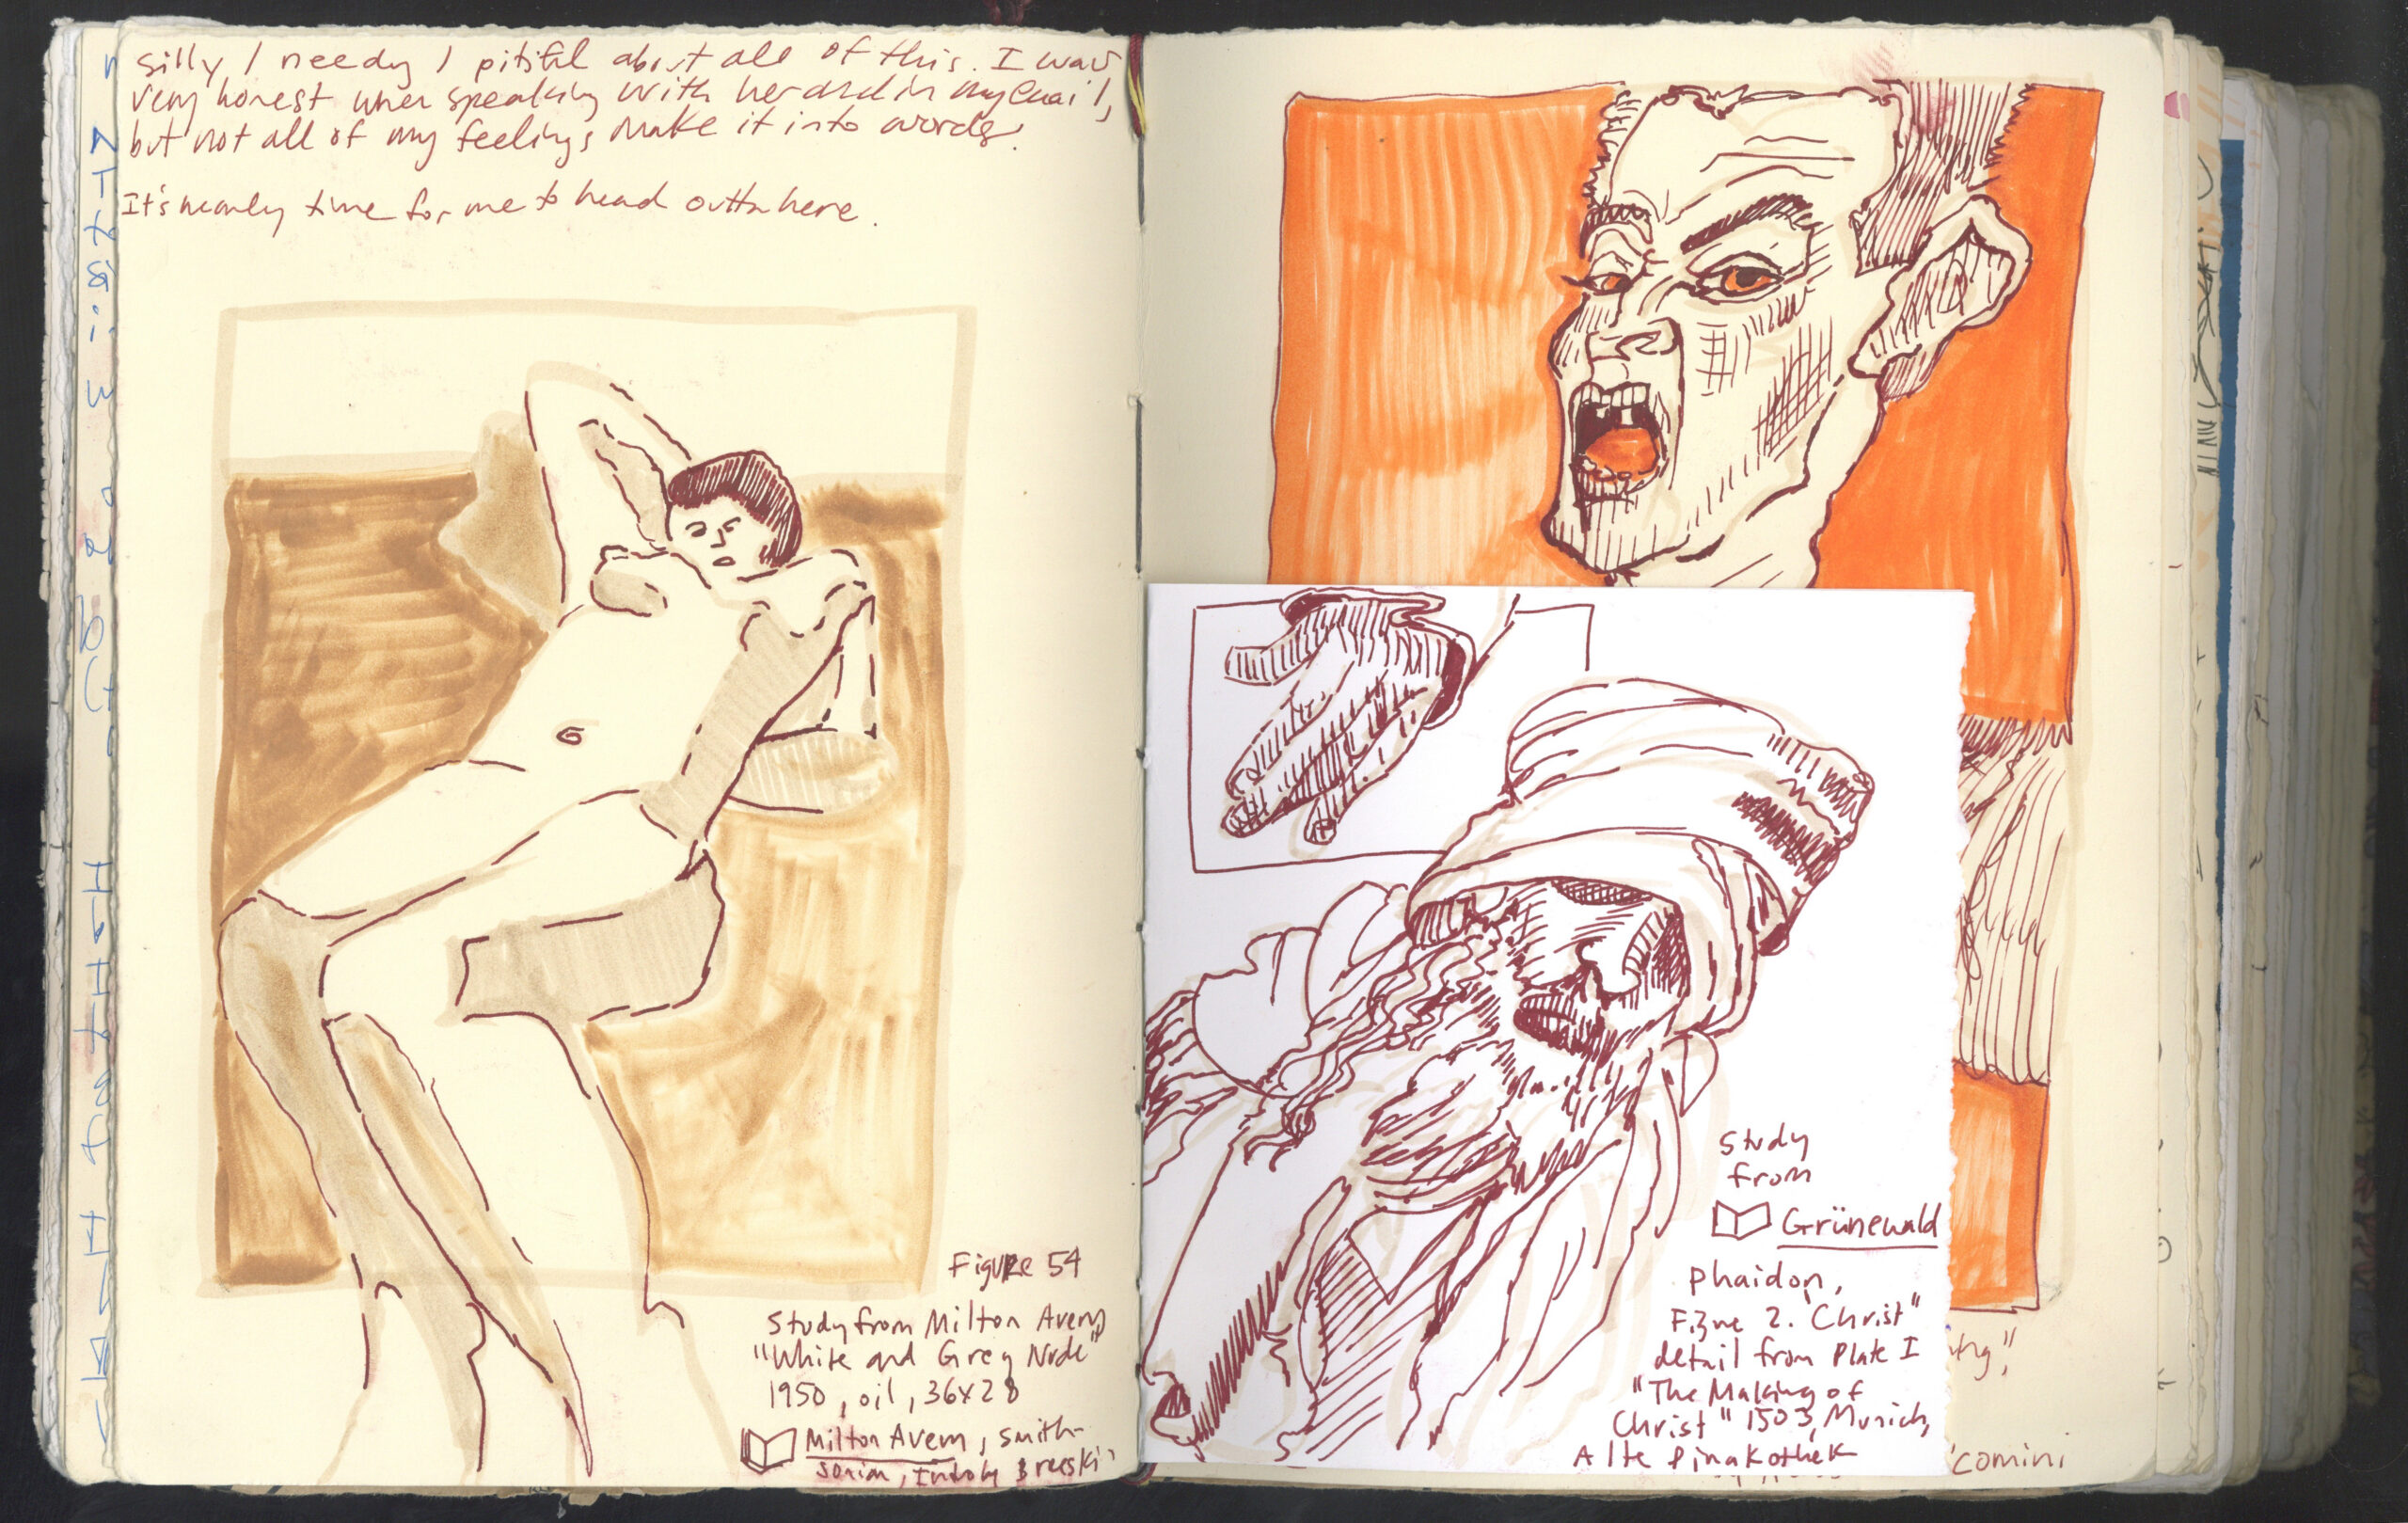 silly / needy / pitiful about all of this. I was
very honest when speaking with her and in my email,
but not all of my feelings make it into words.
It's nearly time for me to head outta here.
Figure 54
Study from Milton Avery
"White and Grey Nude"
1950, oil, 36x28
Milton Avery, Smith-
sonian, Breeskin
study
from
Grünewald
phaidon,
Figure 2. Christ"
detail from Plate I
"The Making of
Christ" 1503, Munich,
Alte Pinakothek
comini